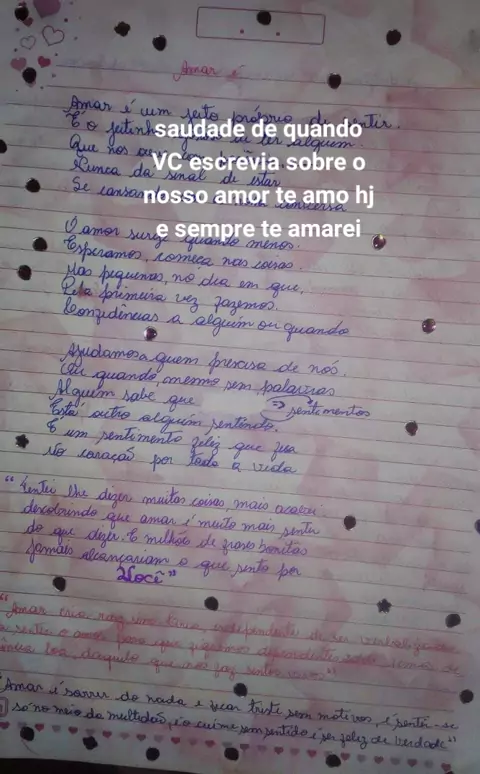 Amar é
Amar é um jeito próprio de sentir.
É o jeitinho de ter alguém
Que nos
Nunca da sinal de estar
Se cansando conversa
saudade de quando
VC escrevia sobre o
nosso amor te amo hj
e sempre te amarei
O amor surge quando menos.
Esperamos, começa nas coisas.
Mas pequenas, no dia em que,
Pela primeira vez fazemos.
Confidências a alguém ou quando
Ajudamos a quem precisa de nós.
Ou quando, mesmo sem palavras
Alguém sabe que
sentimentos
Está outro alguém sentindo.
É um sentimento feliz que fica
No coração por toda a vida
"Tentei lhe dizer muitas coisas, mais acabei
descobrindo que amar é muito mais sentir
do que dizer. E milhões de frases bonitas
jamais alcançariam o que sinto por
Você"
"Amar independente de ser
sentir o
boa, daquilo que nos faz sentir vivos."
"Amar é sorrir do nada e ficar triste sem motivos, é sentir-se
só no meio da multidão, é o ciúme sem sentido e ser feliz de verdade"